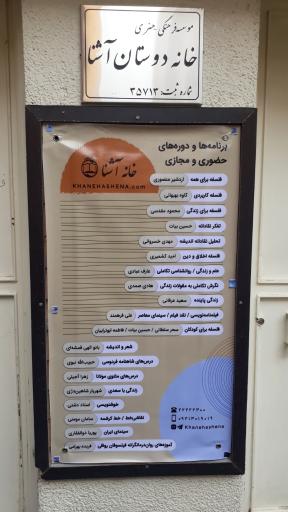 موسسه فرهنگی هنری
خانه دوستان آشنا
شماره ثبت: ۳۵۷۱۳
برنامه‌ها و دوره‌های
حضوری و مجازی
خانه آشنا
KHANEHASHENA.com
فلسفه برای همه اردشیر منصوری
فلسفه کاربردی کاوه بهبهانی
فلسفه برای زندگی محمود مقدسی
تفکر نقادانه حسین بیات
تحلیل نقادانه اندیشه مهدی خسروانی
فلسفه اخلاق و دین امید کشمیری
علم و زندگی / روانشناسی تکاملی عارف عبادی
نگرش تکاملی به مقولات زندگی هادی صمدی
زندگی پاینده سعید عرفانی
فیلمنامه‌نویسی / نقد فیلم / سینمای معاصر علی فرهمند
فلسفه برای کودکان سحر سلطانی / حسین بیات / فاطمه ابوترابیان
شعر و اندیشه بانو الهی قمشه‌ای
درس‌های شاهنامه فردوسی حبیب‌الله نبوی
درس‌های مثنوی مولانا زهرا آجیلی
زندگی با سعدی شهریار شاهین‌دژی
خوشنویسی استاد دشتی
نقاشی‌خط / خط کرشمه سامان مومنی
سینمای ایران پوریا ذوالفقاری
آموزه‌های روان‌درمانگرانه فیلسوفان رواقی فریده بهرامی
Khanehashena